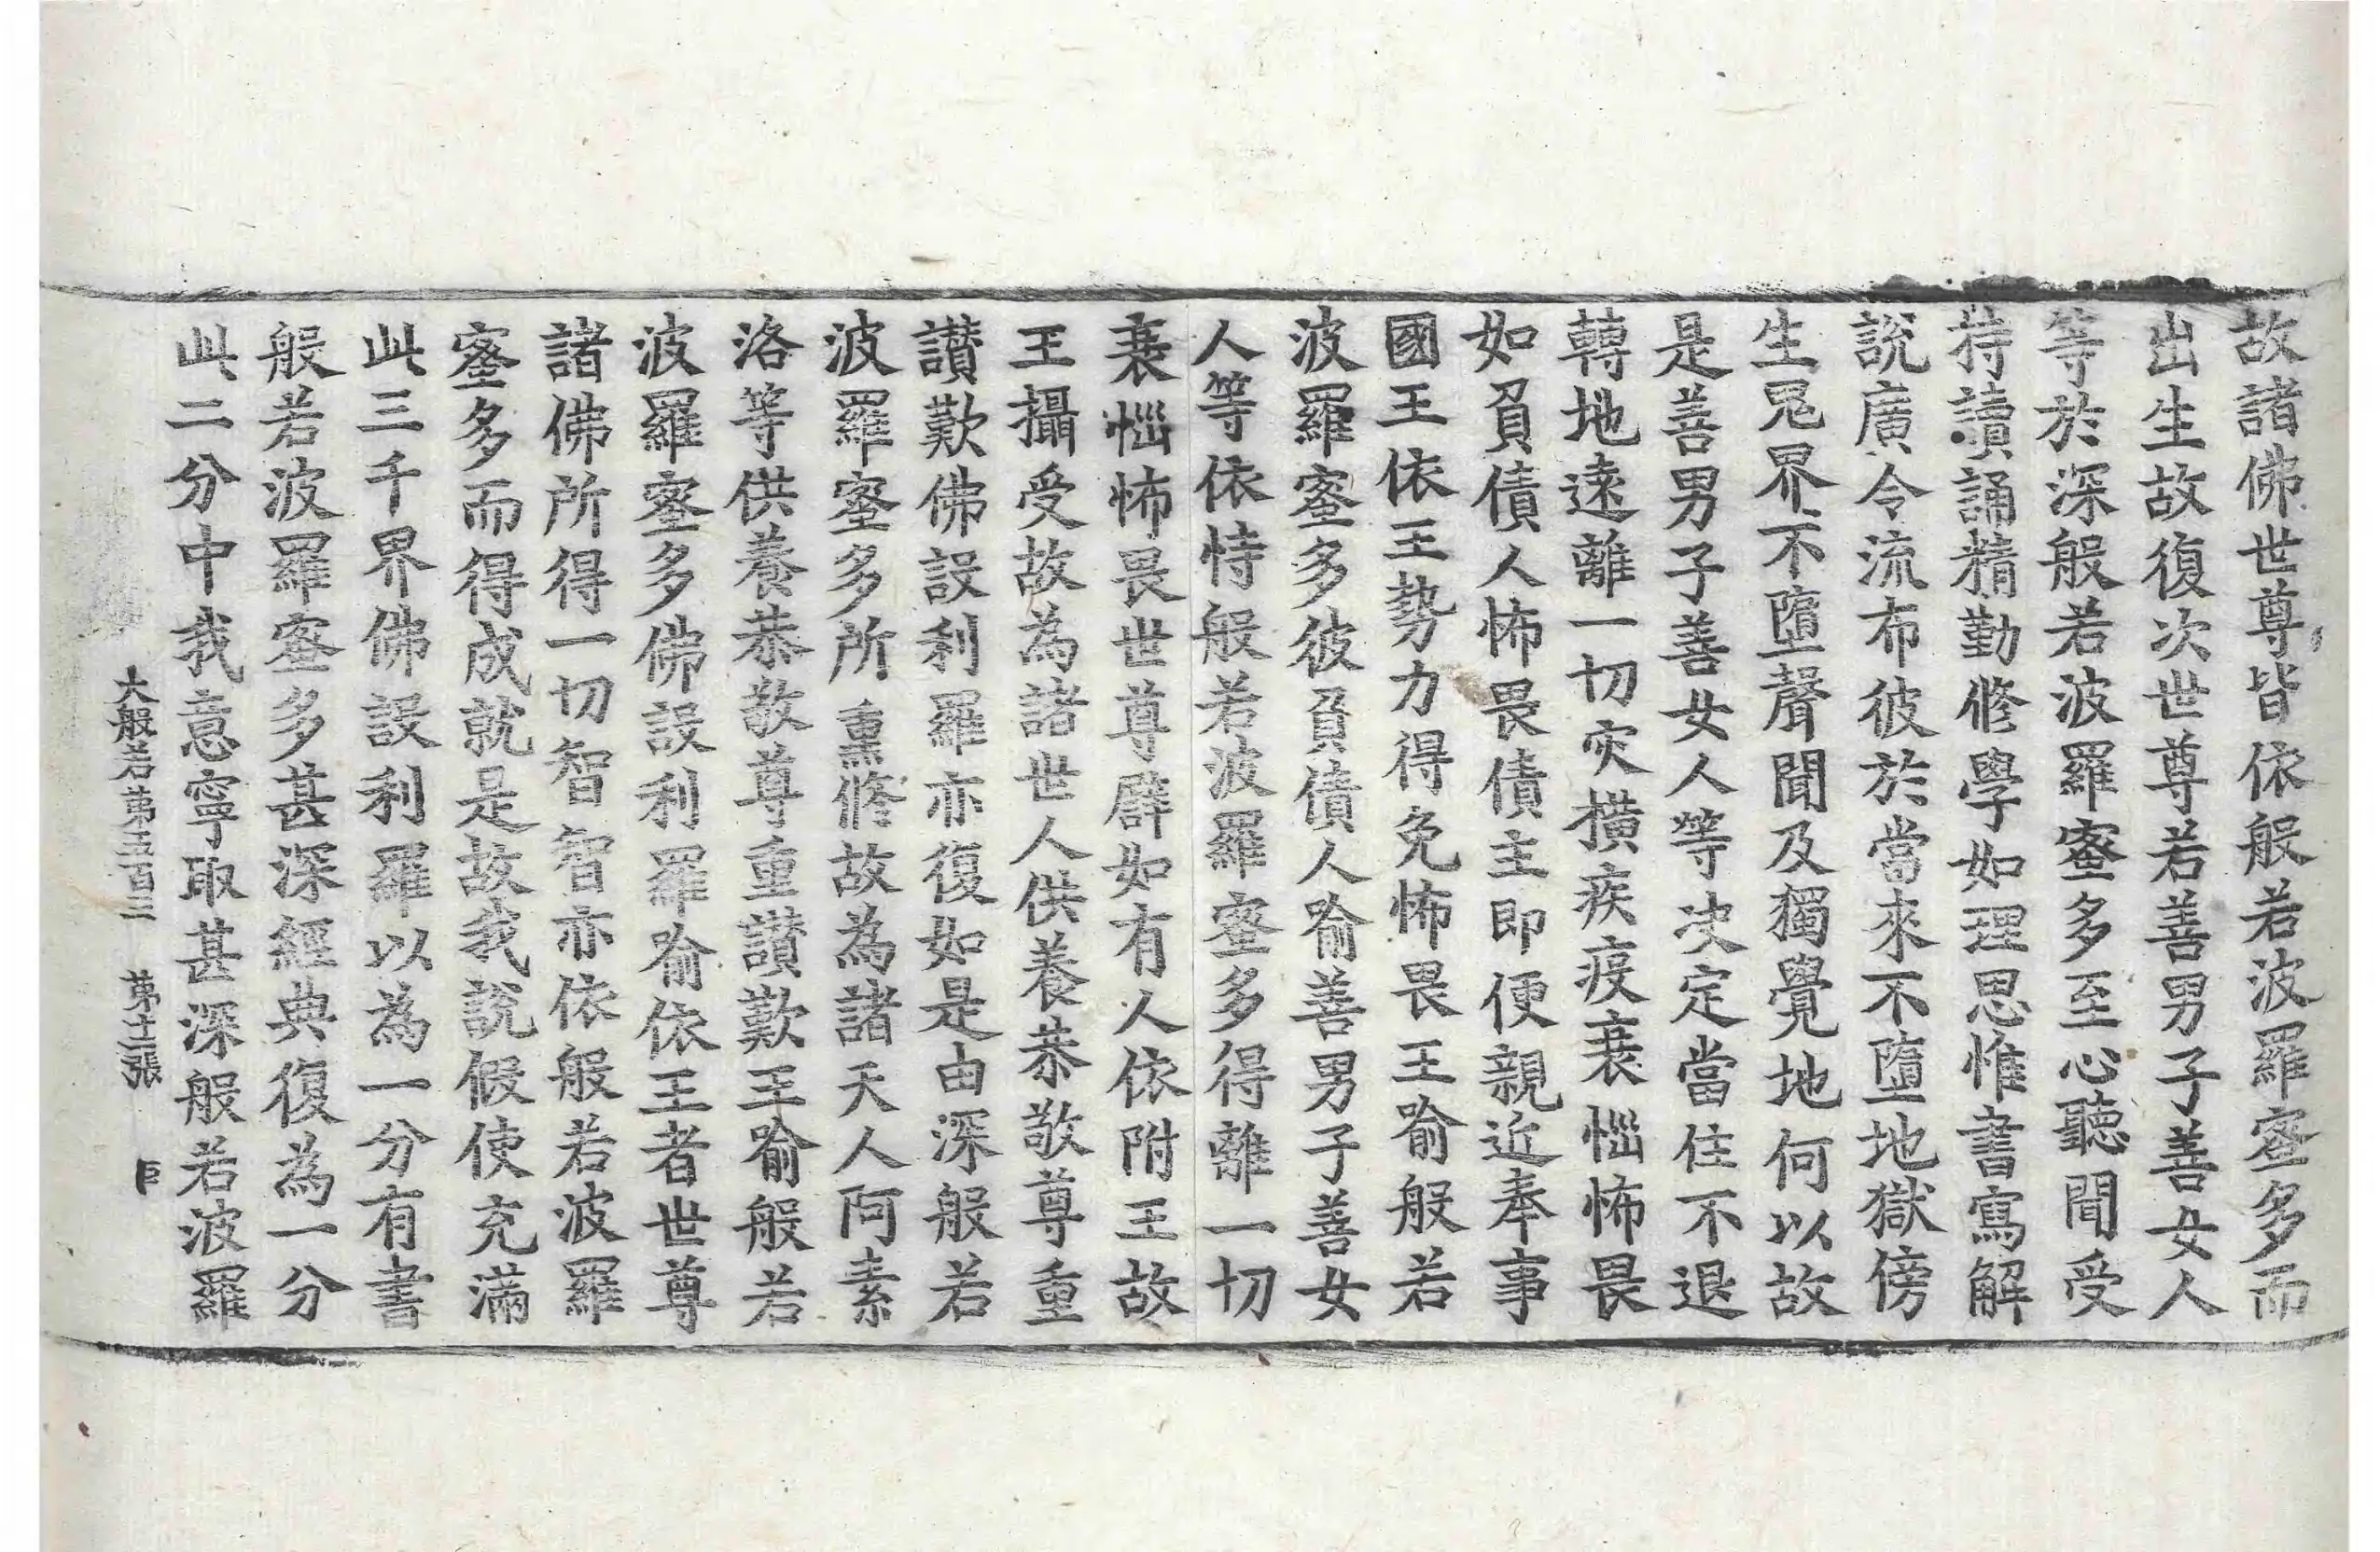 故諸佛世尊皆依般若波羅蜜多而
出生故復次世尊若善男子善女人
等於深般若波羅蜜多至心聽聞受
持讀誦精勤修學如理思惟書寫解
說廣令流布彼於當來不墮地獄傍
生鬼界不墮聲聞及獨覺地何以故
是善男子善女人等决定當住不退
轉地遠離一切灾橫疾疫衰惱怖畏
如負債人怖畏債主即便親近奉事
國王依王勢力得免怖畏王喻般若
波羅蜜多彼負債人喻善男子善女
人等依恃般若波羅蜜多得離一切
衰惱怖畏世尊譬如有人依附王故
王攝受故為諸世人供養恭敬尊重
讃歎佛設利羅亦復如是由深般若
波羅蜜多所熏修故為諸天人阿素
洛等供養恭敬尊重讃歎王喻般若
波羅蜜多佛設利羅喻依王者世尊
諸佛所得一切智智亦依般若波羅
蜜多而得成就是故我說假使充滿
此三千界佛設利羅以為一分有書
般若波羅蜜多甚深經典復為一分
此二分中我意寧取甚深般若波羅
大般若第五百三　第十二張　巨